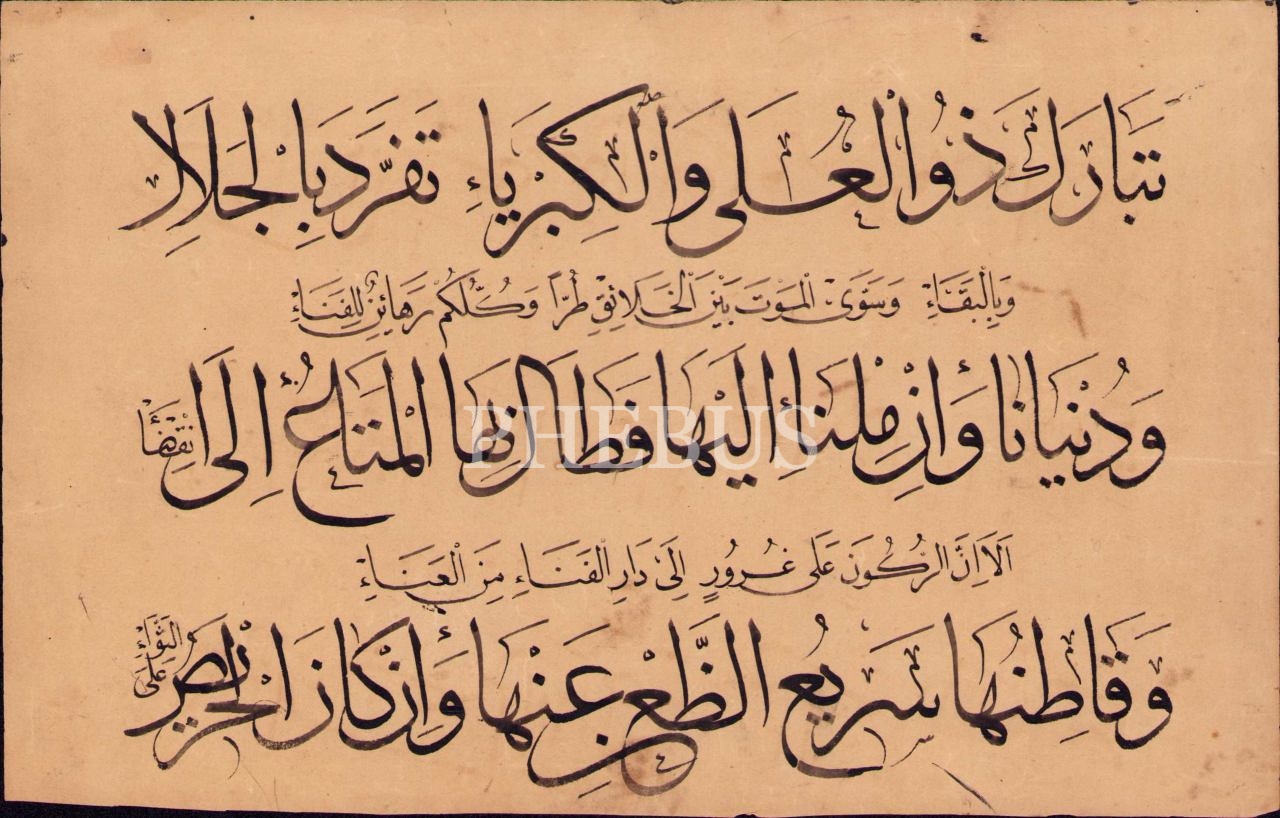 تَبَارَكَ ذُو الْعُلَى وَالْكِبْرِيَاءِ تَفَرَّدَ بِالْجَلَالِ
وَبِالْبَقَاءِ وَسَوَّى الْمَوْتَ بَيْنَ الْخَلَائِقِ طُرًّا وَكُلُّكُمْ رَهَائِنٌ لِلْفَنَاءِ
وَدُنْيَانَا وَاِنْ مِلْنَا اِلَيْهَا فَطَالَ بِهَا الْمَتَاعُ اِلَى انْقِضَاءِ
اَلَا اِنَّ الرُّكُونَ عَلَى غُرُورٍ اِلَى دَارِ الْفَنَاءِ مِنَ الْعَنَاءِ
وَقَاطِنُهَا سَرِيعُ الظَّعْنِ عَنْهَا وَاِنْ كَانَ الْحَرِيصَ عَلَى الثَّوَاءِ
PHEBUS